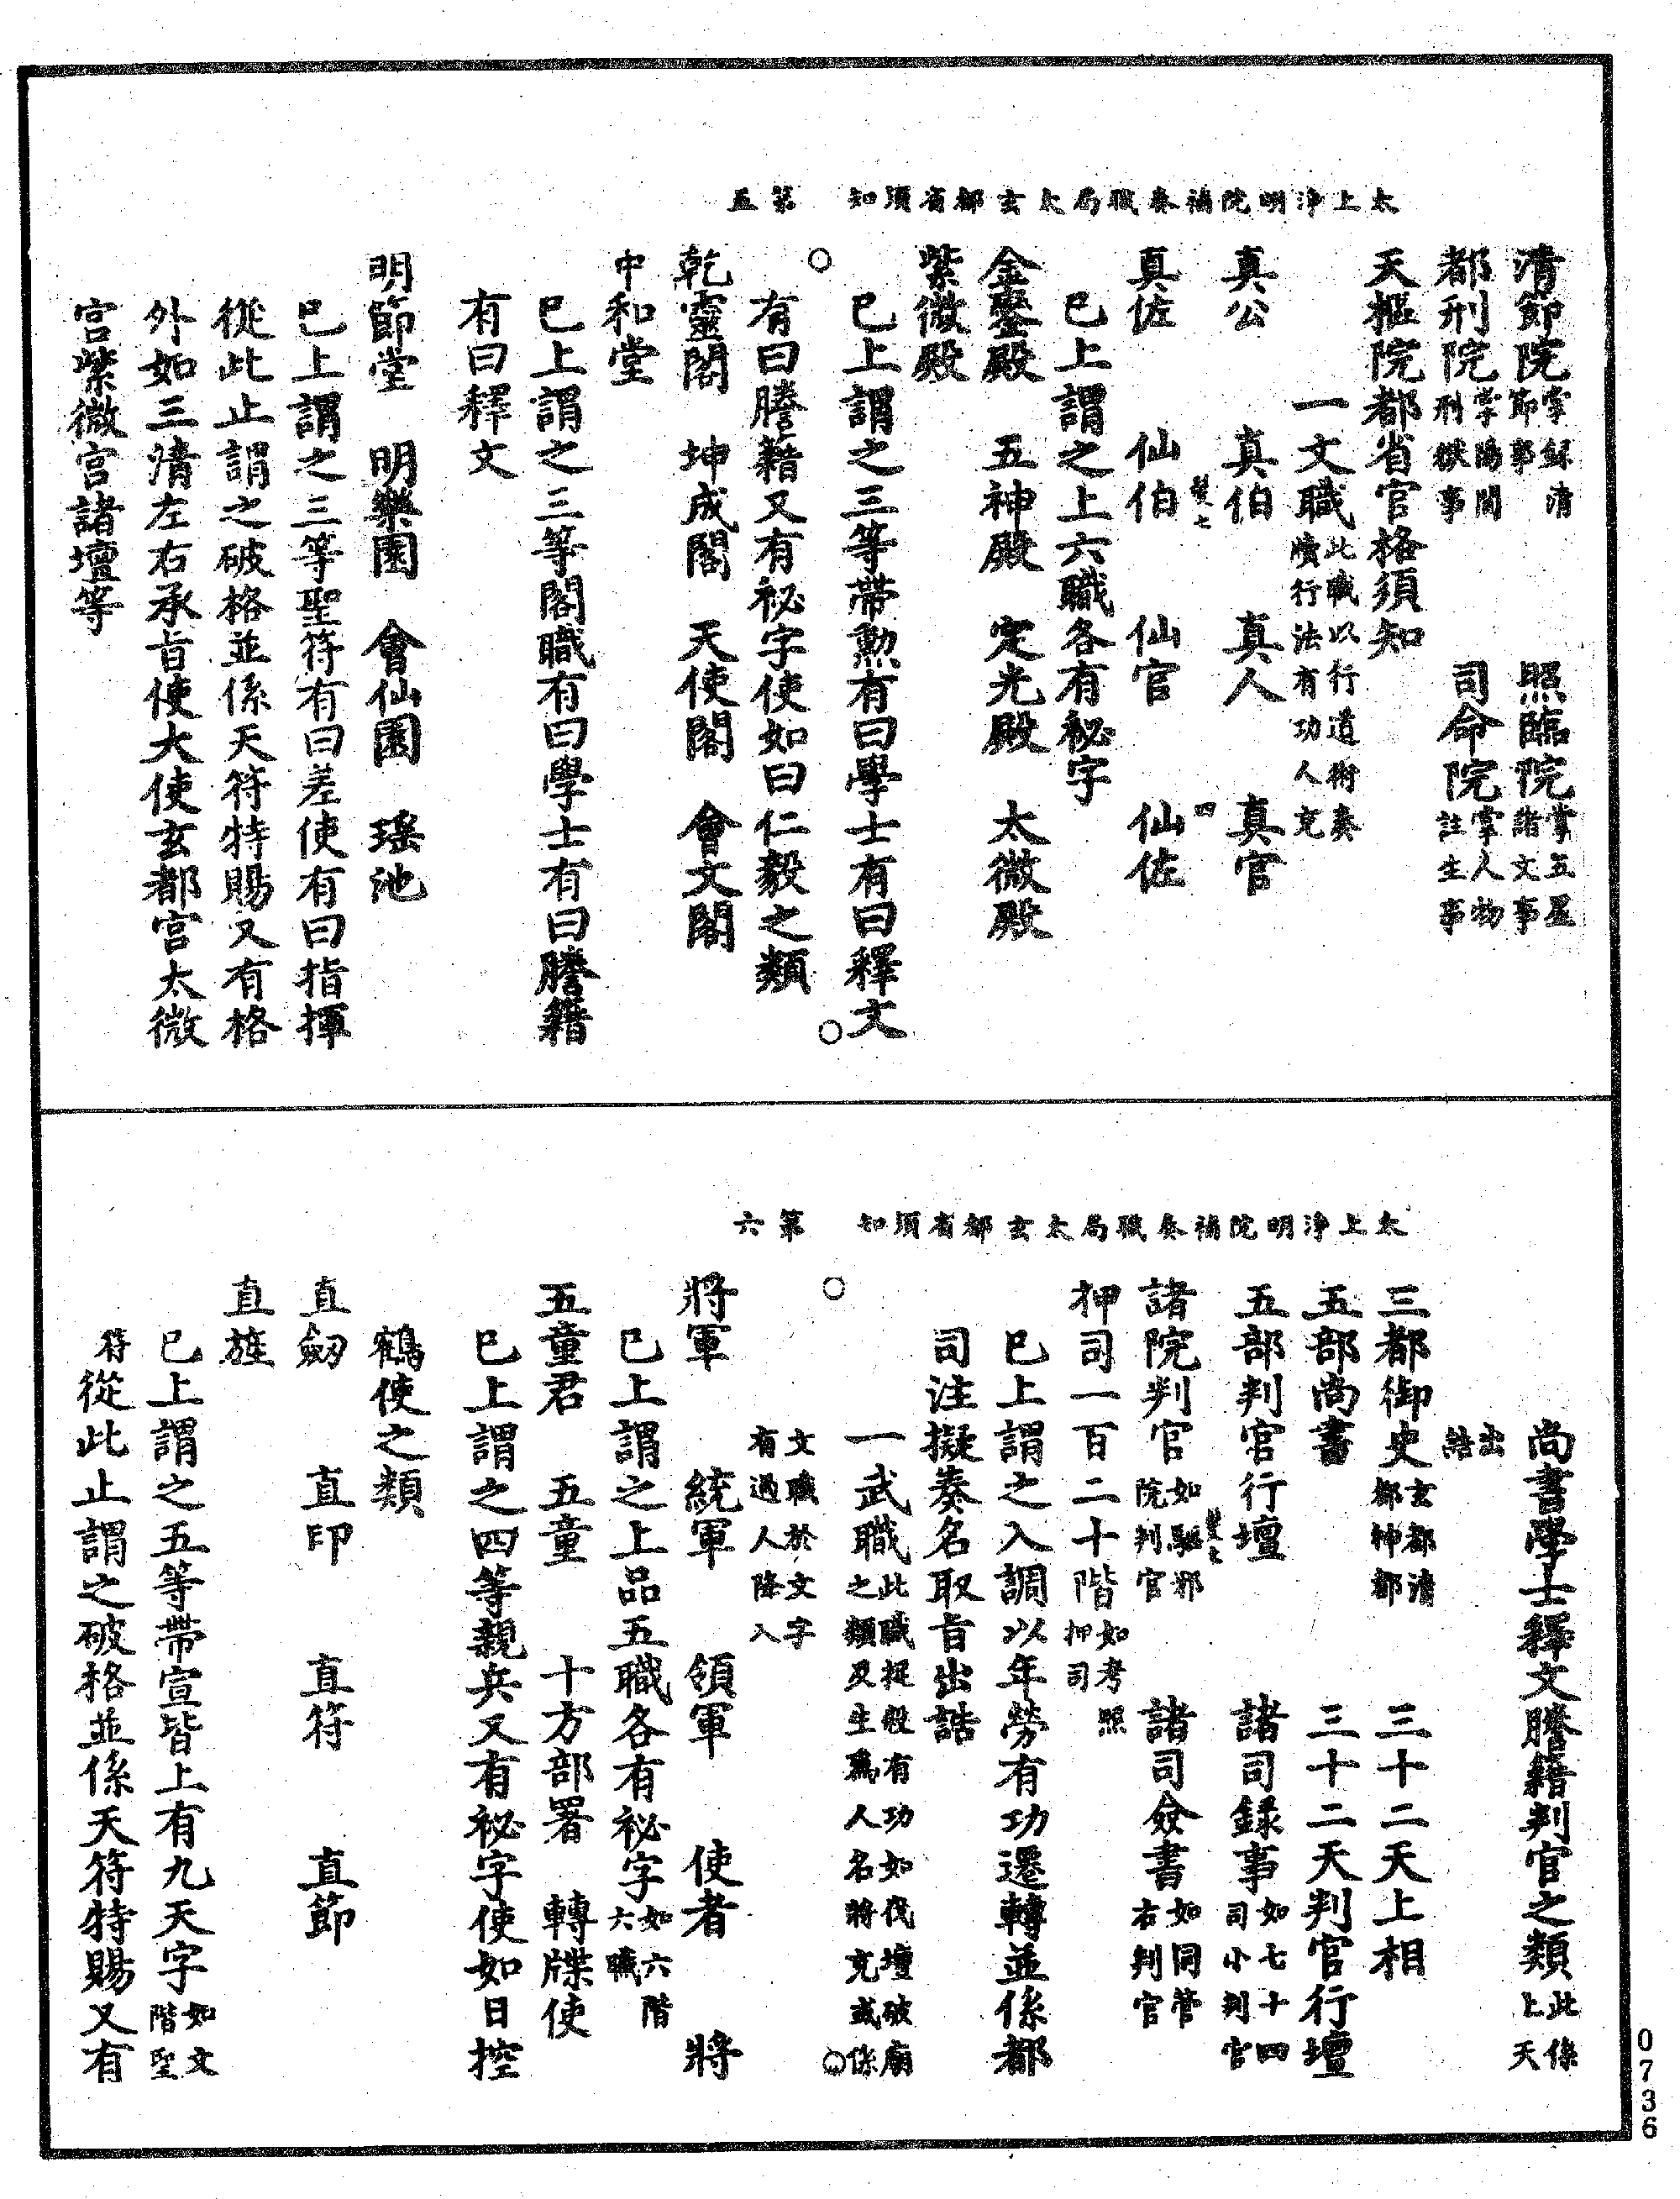 太上淨明院補奏職局太玄都省須知　第五
清節院掌録清節事　照臨院掌五屬諸文事
都刑院掌陽間刑獄事　司命院掌人物註生事
天樞院都省官格須知
一文職此職以行道術奏牘行法有功人充
真公　真伯　真人　真官
四
真佐　仙伯　仙官　仙佐
巳上謂之上六職各有秘字
金鑾殿　五神殿　定光殿　太微殿
紫微殿
巳上謂之三等帶勲有曰學士有曰釋文
有曰謄籍又有祕字使如曰仁毅之類
乾靈閣　坤成閣　天使閣　會文閣
中和堂
巳上謂之三等閣職有曰學士有曰謄籍
有曰釋文
明節堂　明樂園　會仙園　瑤池
巳上謂之三等聖符有曰差使有曰指揮
從此止謂之破格並係天符特賜又有格
外如三清左右承旨使大使玄都宮太微
宮紫微宮諸壇等
太上淨明院補奏職局太玄都省須知　第六
尚書學士釋文謄籍判官之類此係上天
出誥
三都御史玄都清都神都　三十二天上相
五部尚書　三十二天判官行壇
五部判官行壇　諸司録事如七十四司小判官
諸院判官如驅邪院判官　諸司僉書如同管右判官
押司一百二十階如考照押司
巳上謂之入調以年勞有功遷轉並係都
司注擬奏名取旨出誥
一武職此職捉殺有功如伐壇破廟之類及生爲人名將充或係
文職於文字有過人降入
將軍　統軍　領軍　使者　將
巳上謂之上品五職各有祕字如六階六職
五童君　五童　十方部署　轉牒使
巳上謂之四等親兵又有祕字使如曰控
鶴使之類
直劒　直印　直符　直節
直旌
巳上謂之五等帶宣皆上有九天字如文階聖
符從此止謂之破格並係天符特賜又有
0736